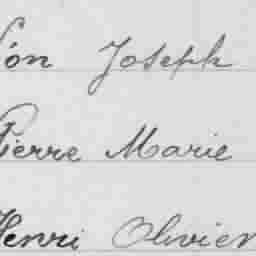 Joseph
Pierre Marie
Henri Olivier